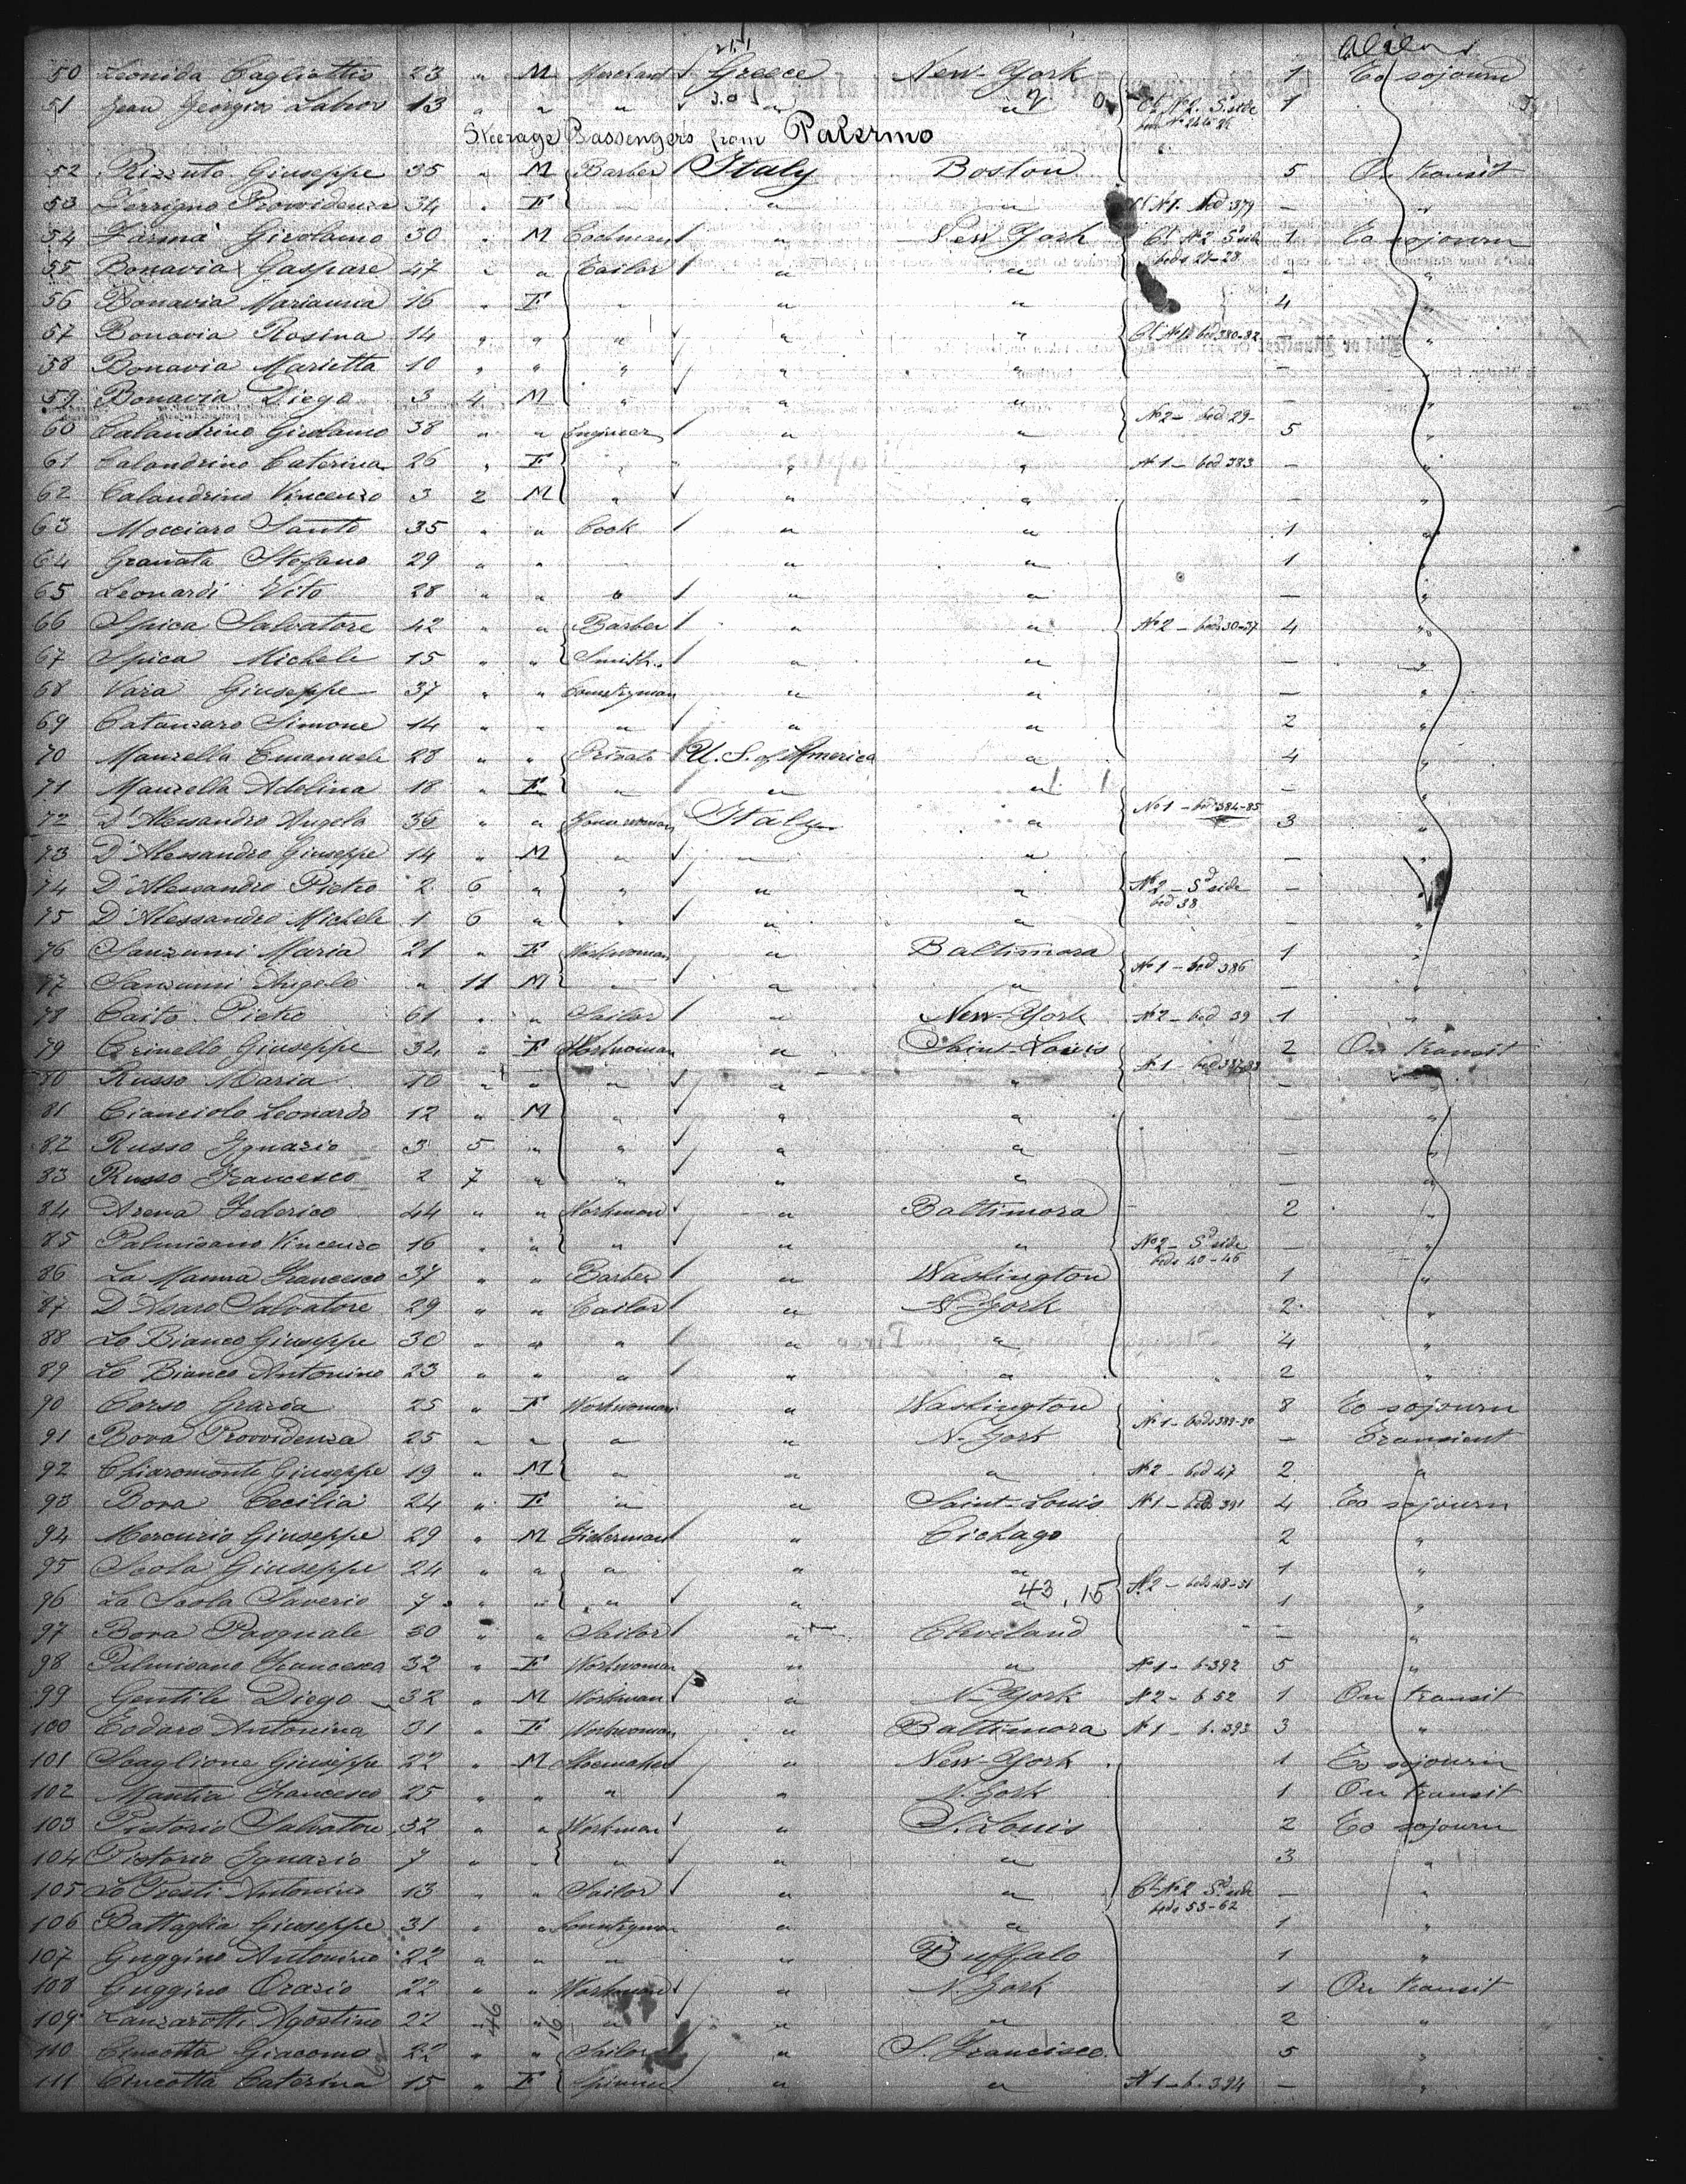 Aliens
50 Leonida Cagliottis 23 " M Merchant Greece New-York 1 To sojourn
51 Jean Georgios 13 " " " " " Ct. No 2. Sd side 1
Steerage Passengers from Palermo
52 Rizzuto Giuseppe 35 " M Barber Italy Boston 5 On transit
53 Provvidenza 34 " F " " " Ct No 1. bed 379 — "
54 Farina Girolamo 30 " M New-York Ct No 2 Sd side 1 To sojourn
beds 27-28
55 Bonavia Gaspare 47 " " Tailor " " "
56 Bonavia Marianna 16 " F " " " 4 "
57 Bonavia Rosina 14 " " " " " Ct No 1 bed 380-82 — "
58 Bonavia Marietta 10 " " " " " — "
59 Bonavia Diego 3 4 M " " " — "
60 Calandrino Girolamo 38 " " Engineer " " No 2 — bed 29 5 "
61 Calandrino Caterina 26 " F " " " No 1 — bed 383 — "
62 Calandrino Vincenzo 3 2 M " " " — "
63 Mocciaro Santo 35 " " Cook " " 1 "
64 Granata Stefano 29 " " " " 1 "
65 Leonardi Vito 28 " " " " " — "
66 Spica Salvatore 42 " " Barber " " No 2 — beds 30-37 4 "
67 Spica Michele 15 " " Smith " " — "
68 Vara Giuseppe 37 " " Countryman " " — "
69 Catanzaro Simone 14 " " " " " 2 "
70 Manzella Emanuele 28 " " Private U. S. of America " 4 "
71 Manzella Adelina 18 " F " " " — "
72 D'Alessandro Angela 36 " " Italy " No 1 — bed 384-85 3 "
73 D'Alessandro Giuseppe 14 " M " " " — "
74 D'Alessandro Pietro 2 6 " " " " No 2 — Sd side — "
bed 38
75 D'Alessandro Michele 1 6 " " " " — "
76 Sanzumi Maria 21 " F Workwoman " Baltimora No 1 — bed 386 1 "
77 Sanzumi Angelo " 11 M " " " — "
78 Caito Pietro 61 " " Sailor " New-York No 2 — bed 39 1 "
79 Crinello Giuseppe 34 " F Workwoman " Saint-Louis 2 On transit
80 Russo Maria 10 " " " " " —
81 Cianciolo Leonardo 12 " M " " " — "
82 Russo Ignazio 3 5 " " " " — "
83 Russo Francesco 2 7 " " " " — "
84 Arena Federico 44 " " Workman " Baltimora 2 "
85 Palmisano Vincenzo 16 " " " " " No 2 — Sd side — "
beds 40-46
86 La Manna Francesco 37 " " Barber " Washington 1 "
87 D'Asaro Salvatore 29 " " Tailor " N-York 2 "
88 Lo Bianco Giuseppe 30 " " " " " 4 "
89 Lo Bianco Antonino 23 " " " " " 2 "
90 Corso Grazia 25 " F Workwoman " Washington No 1 — beds 389-90 8 To sojourn
91 Bova Provvidenza 25 " " " " N-York — Transient
92 Chiaromonte Giuseppe 19 " M " " " No 2 — bed 47 2 "
93 Bova Cecilia 24 " F " " Saint-Louis No 1 — bed 391 4 To sojourn
94 Mercurio Giuseppe 29 " M Fisherman " Cichago 2 "
95 Scola Giuseppe 24 " " " " " No 2 — beds 48-51 1 "
96 La Scola Saverio 7 " " " " " 43, 15 1 "
97 Bova Pasquale 50 " " Sailor " Cleveland — "
98 Palmisano Francesca 32 " F Workwoman " " No 1 - b. 392 5 "
99 Gentile Diego 32 " M Workman " N-York No 2 - b 52 1 On transit
100 Todaro Antonina 31 " F Workwoman " Baltimora No 1 - b. 393 3 "
101 Scaglione Giuseppe 22 " M Shoemaker " New-York 1 To sojourn
102 Mantia Francesco 25 " " " " N. York 1 On transit
103 Pistorio Salvatore 32 " " Workman " S. Louis 2 To sojourn
104 Pistorio Ignazio 7 " " " " " 3 "
105 Lo Presti Antonino 13 " " Sailor " " Ct No 2 Sd side — "
beds 53-62
106 Battaglia Giuseppe 31 " " Countryman " " 1 "
107 Guggino Antonino 22 " " " " Buffalo 1 "
108 Guggino Orazio 22 " " Workman " N. York 1 On transit
109 Lanzarotti Agostino 22 " " " " " 2 "
110 Cincotta Giacomo 22 " " Sailor " S. Francisco 5 "
111 Cincotta Caterina 15 " F Spinner " " No 1 - b. 394 — "